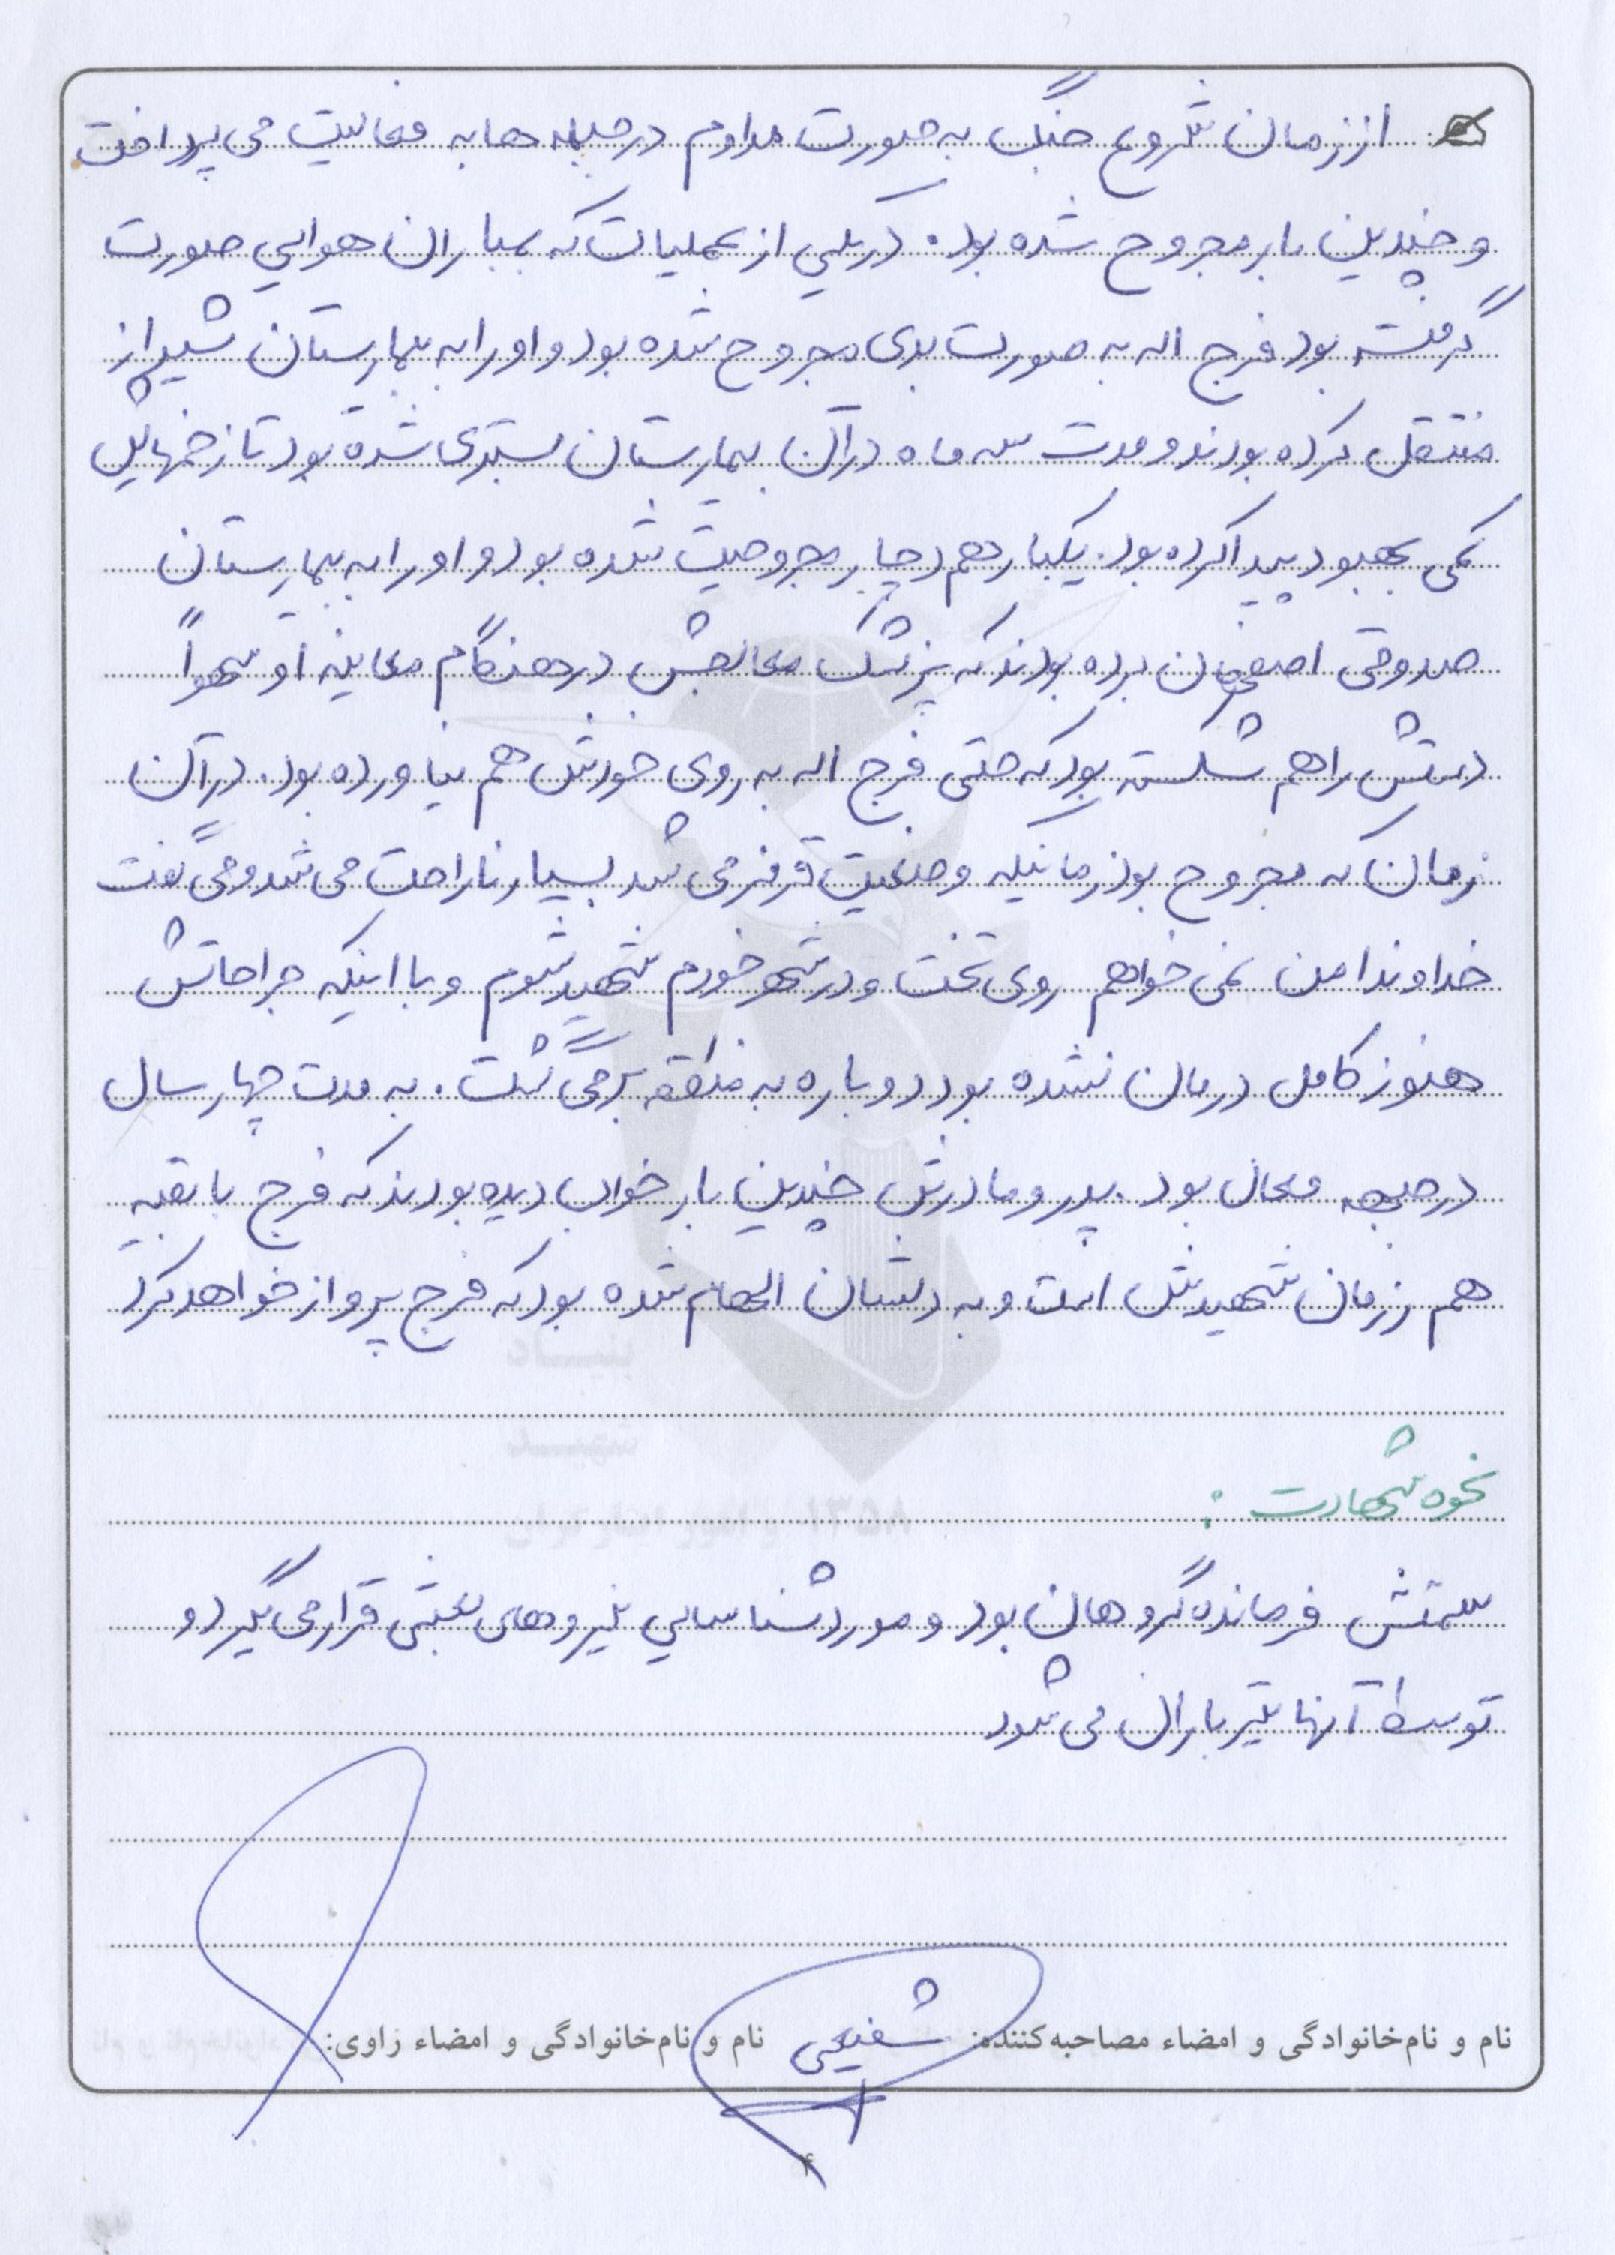 از زمان شروع جنگ به صورت مداوم در جبهه ها به فعالیت می پرداخت
و چندین بار مجروح شده بود. در یکی از عملیات که بمباران هوایی صورت
گرفته بود فرج اله به صورت بدی مجروح شده بود و او را به بیمارستان شیراز
منتقل کرده بودند و مدت سه ماه در آن بیمارستان بستری شده بود تا زخمهایش
کمی بهبود پیدا کرده بود. یکبار هم دچار مجروحیت شده بود و او را به بیمارستان
صدوقی اصفهان برده بودند که پزشک معالجش در هنگام معاینه او سهواً
دستش را هم شکسته بود که حتی فرج اله به روی خودش هم نیاورده بود. در آن
زمان که مجروح بود زمانیکه وضعیت قرمز می شد بسیار ناراحت می شد و می گفت
خداوندا من نمی خواهم روی تخت و در شهر خودم شهید شوم و با اینکه جراحاتش
هنوز کامل درمان نشده بود دوباره به منطقه برمی گشت. به مدت چهار سال
در جبهه فعال بود. پدر و مادرش چندین بار خواب دیده بودند که فرج با بقیه
هم رزمان شهیدش است و به دلشان الهام شده بود که فرج پرواز خواهد کرد
نحوه شهادت:
سمتش فرمانده گروهان بود و مورد شناسایی نیروهای بعثی قرار می گیرد و
توسط آنها تیرباران می شود
نام و نام‌خانوادگی و امضاء مصاحبه‌کننده: شفیعی نام و نام‌خانوادگی و امضاء راوی:
۴